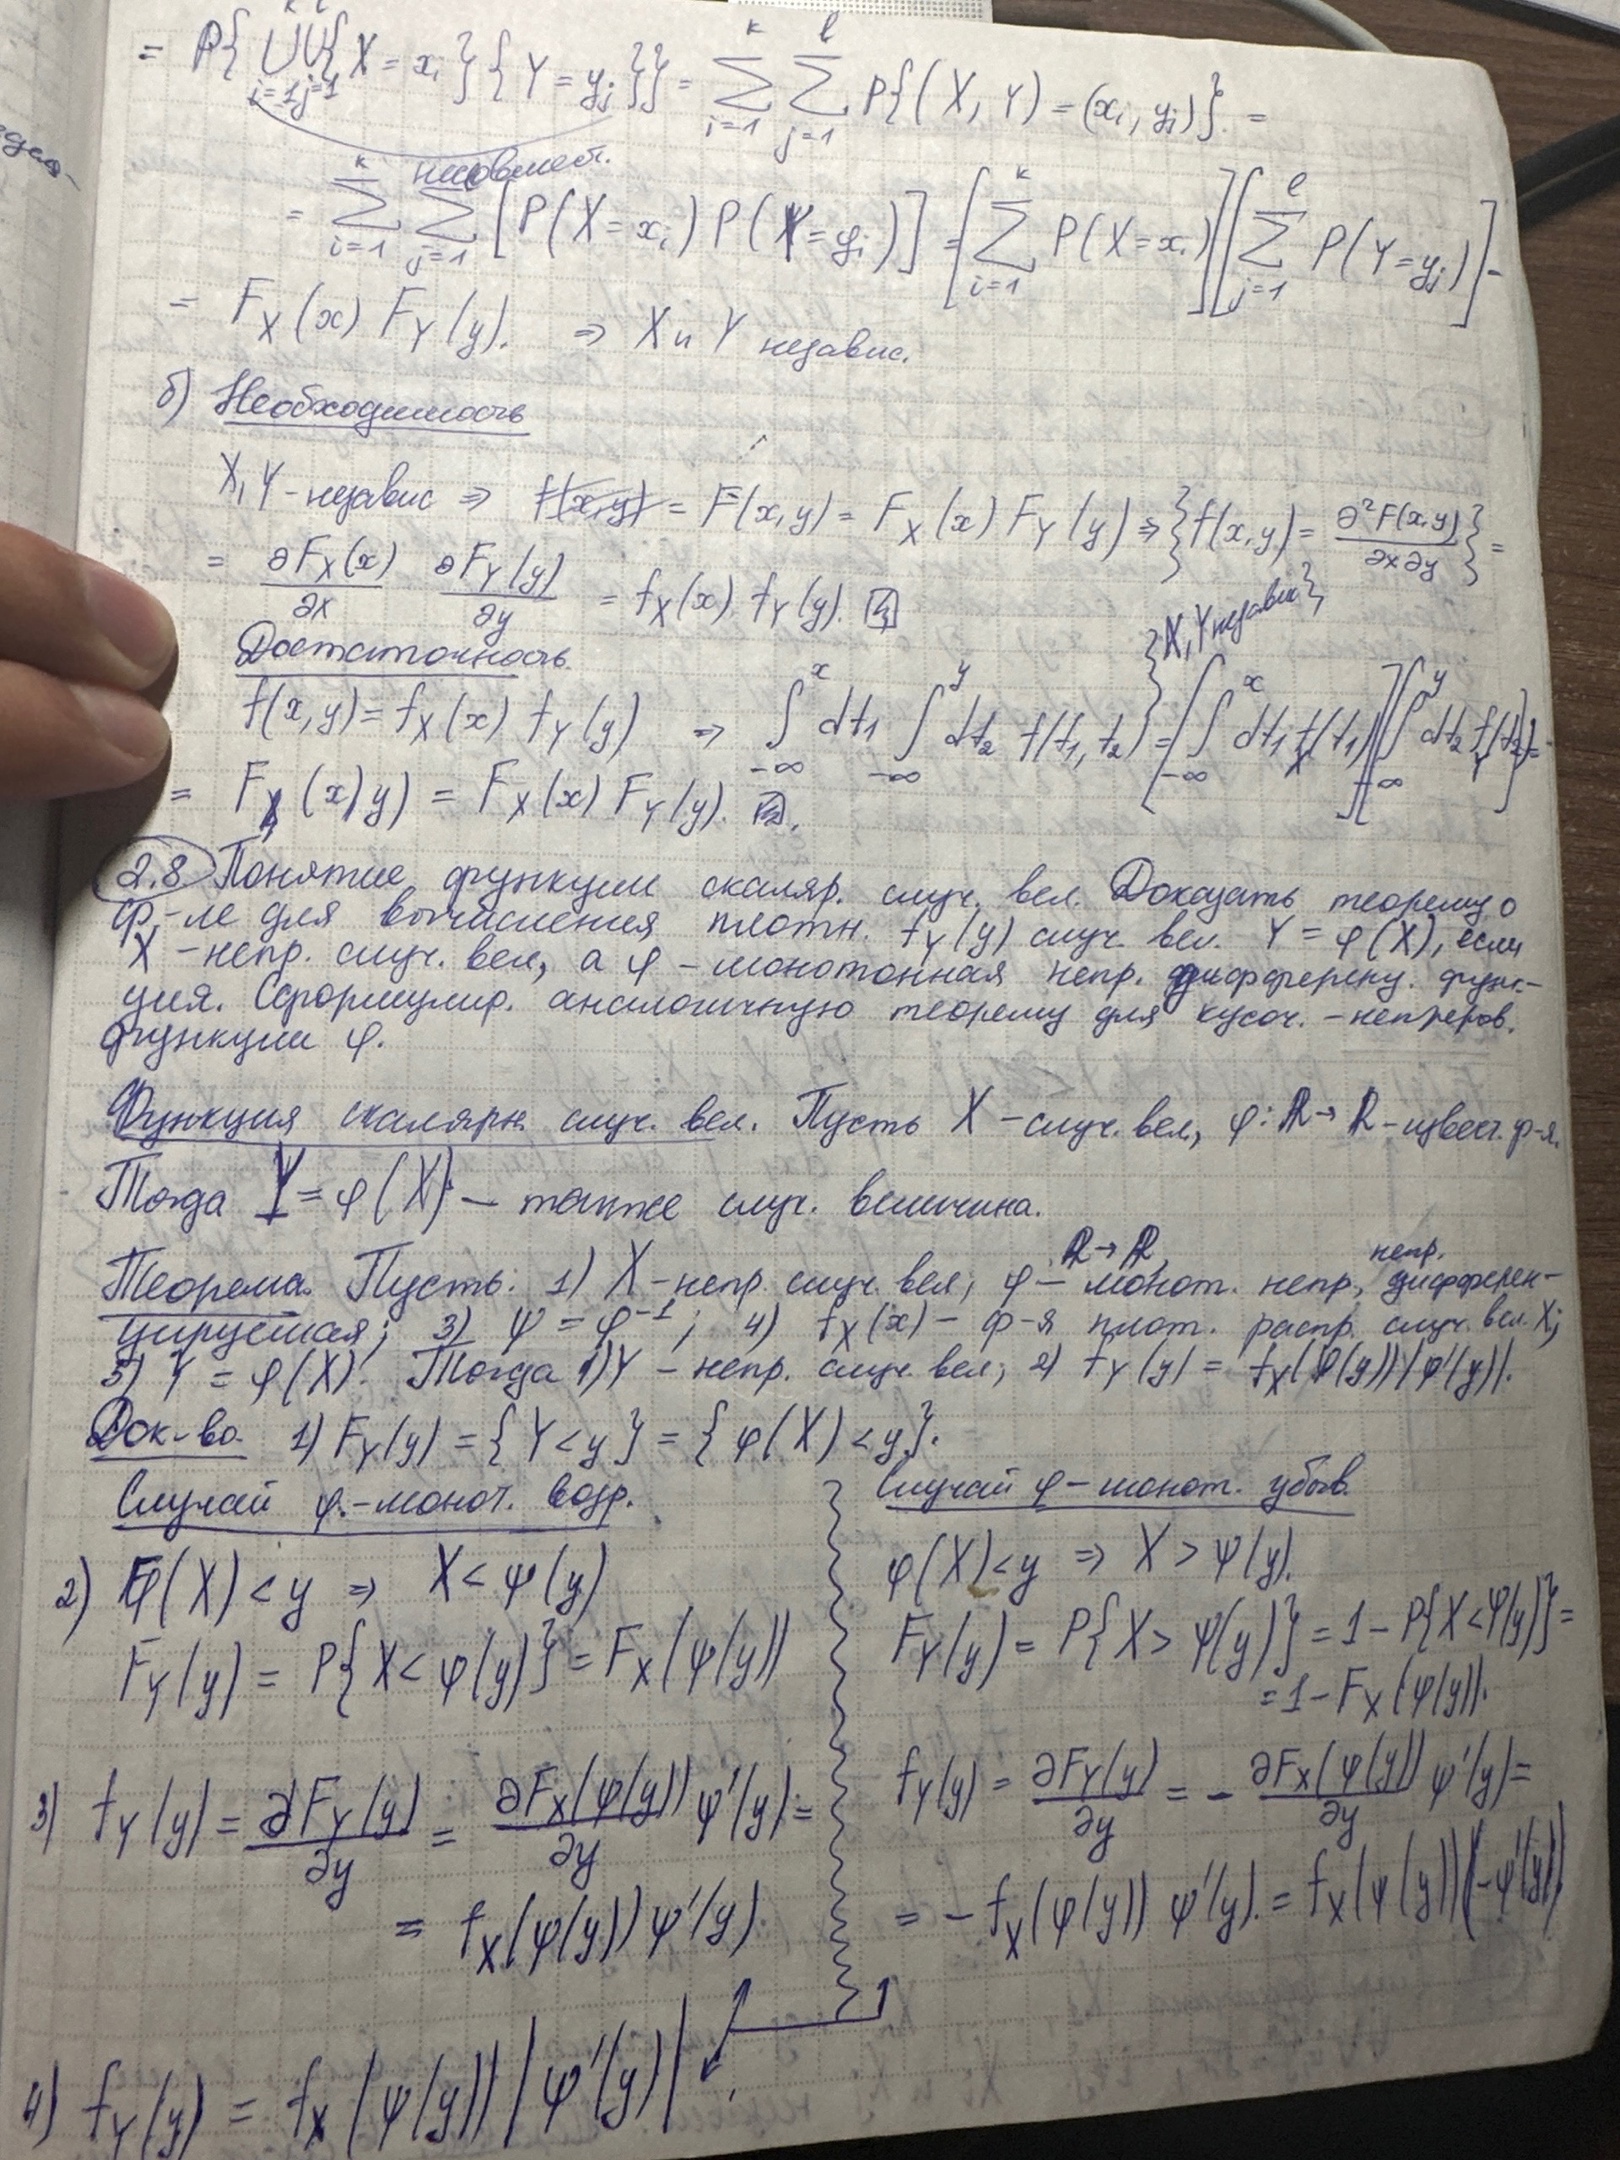 = P{ ⋃_{i=1}^{k} ⋃_{j=1}^{l} {X = x_i} {Y = y_j}} = ∑_{i=1}^{k} ∑_{j=1}^{l} P{(X, Y) = (x_i, y_j)} =
несовмест.
= ∑_{i=1}^{k} ∑_{j=1}^{l} [P(X = x_i) P(Y = y_j)] = [∑_{i=1}^{k} P(X = x_i)] [∑_{j=1}^{l} P(Y = y_j)] =
= F_X(x) F_Y(y). ⇒ X и Y независ.
б) Необходимость
X, Y - независ ⇒ f(x,y) = F(x,y) = F_X(x) F_Y(y) ⇒ {f(x,y) = ∂²F(x,y)/∂x∂y} =
= ∂F_X(x)/∂x ∂F_Y(y)/∂y = f_X(x) f_Y(y).
{X, Y независ}
Достаточность
f(x,y) = f_X(x) f_Y(y) ⇒ ∫_{-∞}^{x} dt₁ ∫_{-∞}^{y} dt₂ f(t₁, t₂) = [∫_{-∞}^{x} dt₁ f_X(t₁)] [∫_{-∞}^{y} dt₂ f_Y(t₂)] =
= F(x, y) = F_X(x) F_Y(y).
2.8 Понятие функции скаляр. случ. вел. Доказать теорему о
ф-ле для вычисления плотн. f_Y(y) случ. вел. Y = φ(X), если
X - непр. случ. вел, а φ - монотонная непр. дифференц. функ-
ция. Сформулир. аналогичную теорему для кусоч. - непреров.
функции φ.
Функция скалярн. случ. вел. Пусть X - случ. вел, φ: ℝ → ℝ - извест. ф-я.
Тогда Y = φ(X) — также случ. величина.
ℝ → ℝ непр.
Теорема. Пусть: 1) X - непр. случ. вел, φ - монот. непр, дифферен-
цируемая; 3) ψ = φ⁻¹; 4) f_X(x) - ф-я плот. распр. случ. вел. X;
5) Y = φ(X). Тогда 1) Y - непр. случ вел, 2) f_Y(y) = f_X(ψ(y)) |ψ'(y)|.
Док-во. 1) F_Y(y) = {Y < y} = {φ(X) < y}.
Случай φ - монот. возр.
2) φ(X) < y ⇒ X < ψ(y)
F_Y(y) = P{X < ψ(y)} = F_X(ψ(y))
3) f_Y(y) = ∂F_Y(y)/∂y = ∂F_X(ψ(y))/∂y ψ'(y) =
= f_X(ψ(y)) ψ'(y).
Случай φ - монот. убыв.
φ(X) < y ⇒ X > ψ(y).
F_Y(y) = P{X > ψ(y)} = 1 - P{X < ψ(y)} =
= 1 - F_X(ψ(y)).
f_Y(y) = ∂F_Y(y)/∂y = - ∂F_X(ψ(y))/∂y ψ'(y) =
= - f_X(ψ(y)) ψ'(y). = f_X(ψ(y)) (-ψ'(y))
4) f_Y(y) = f_X(ψ(y)) |ψ'(y)|.